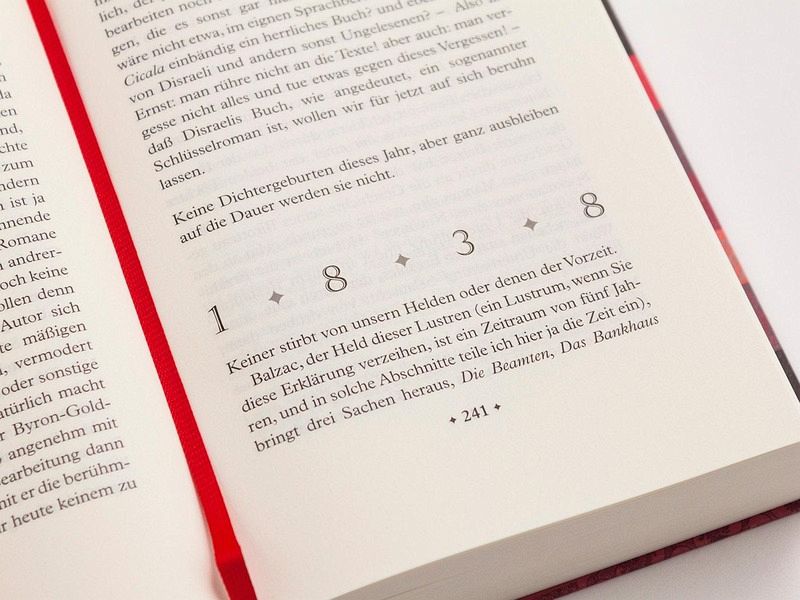 chte
zum
ndern
n ist ja
nnende
Romane
andrer-
och keine
ollen denn
Autor sich
te mäßigen
, vermodert
oder sonstige
atürlich macht
r Byron-Gold-
, angenehm mit
earbeitung dann
mit er die berühm-
r heute keinem zu
bearbeiten noch
gen, die es sonst gar
wäre nicht etwa, im eignen Sprachber
Cicala einbändig ein herrliches Buch? und ebe
von Disraeli und andern sonst Ungelesenen? – Also
Ernst: man rühre nicht an die Texte! aber auch: man ver-
gesse nicht alles und tue etwas gegen dieses Vergessen! –
daß Disraelis Buch, wie angedeutet, ein sogenannter
Schlüsselroman ist, wollen wir für jetzt auf sich beruhn
lassen.
Keine Dichtergeburten dieses Jahr, aber ganz ausbleiben
auf die Dauer werden sie nicht.
1 ✦ 8 ✦ 3 ✦ 8
Keiner stirbt von unsern Helden oder denen der Vorzeit.
Balzac, der Held dieser Lustren (ein Lustrum, wenn Sie
diese Erklärung verzeihen, ist ein Zeitraum von fünf Jah-
ren, und in solche Abschnitte teile ich hier ja die Zeit ein),
bringt drei Sachen heraus, Die Beamten, Das Bankhaus
✦ 241 ✦